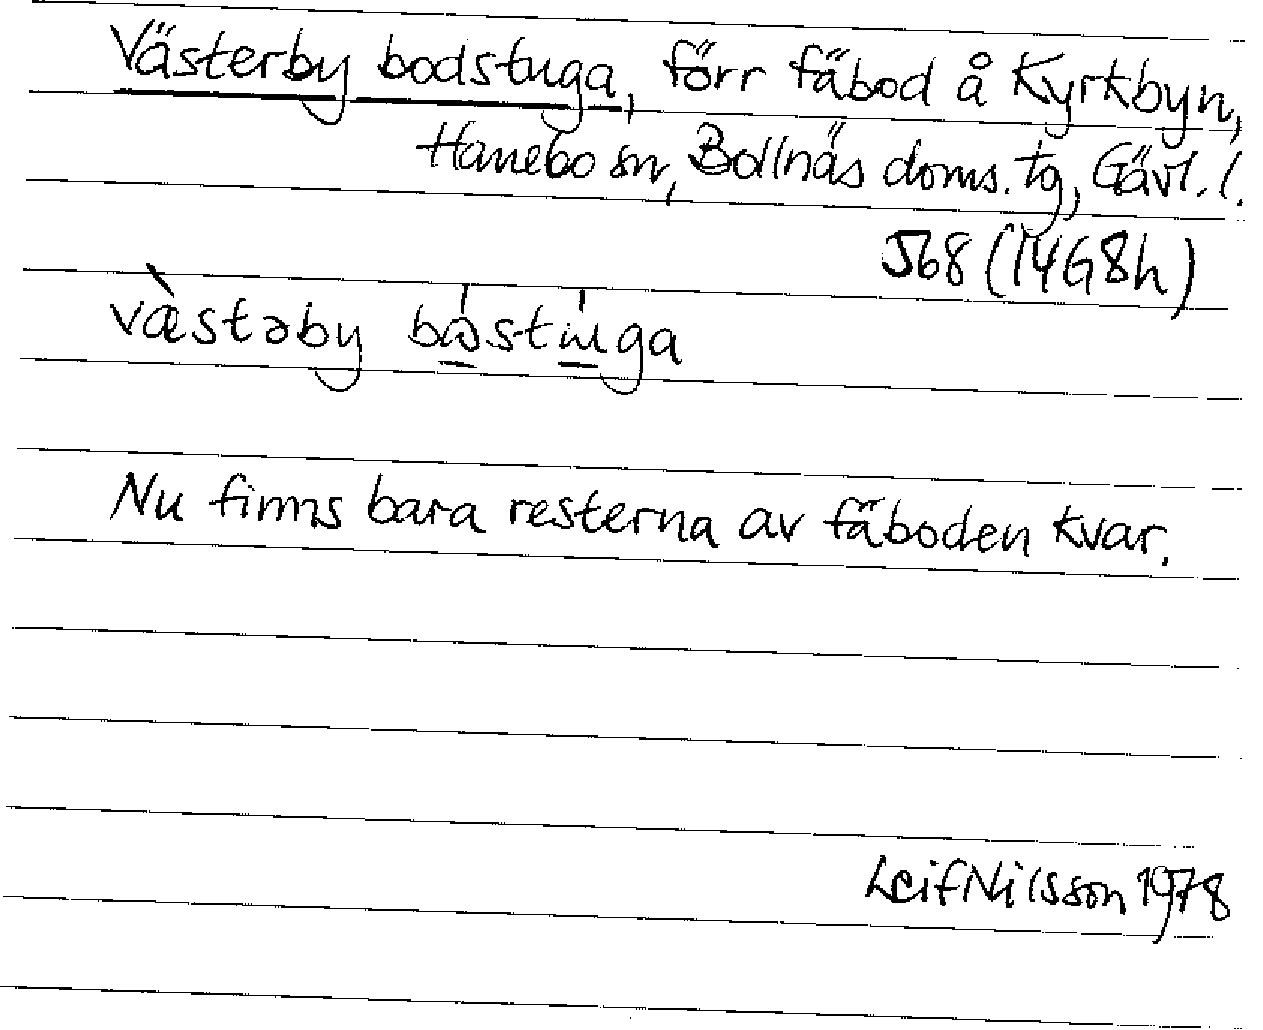 Västerby bodstuga, förr fäbod å Kyrkbyn,
Hanebo sn, Bollnäs doms. tg, Gävl. l.
J68 (14G8h)
Nu finns bara resterna av fäboden kvar.
Leif Nilsson 1978